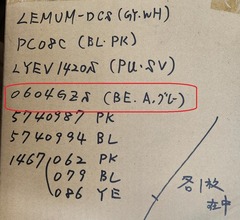 LEMUM-DCS (GY.WH)
PC08C (BL.PK)
LYEV1420S (PU.SV)
0604GZS (BE.A.グレー)
5740987 PK
5740994 BL
1467 062 PK
079 BL
086 YE
各1枚
在中